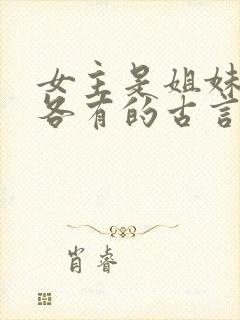 女主是姐妹
各有的古言
肖睿